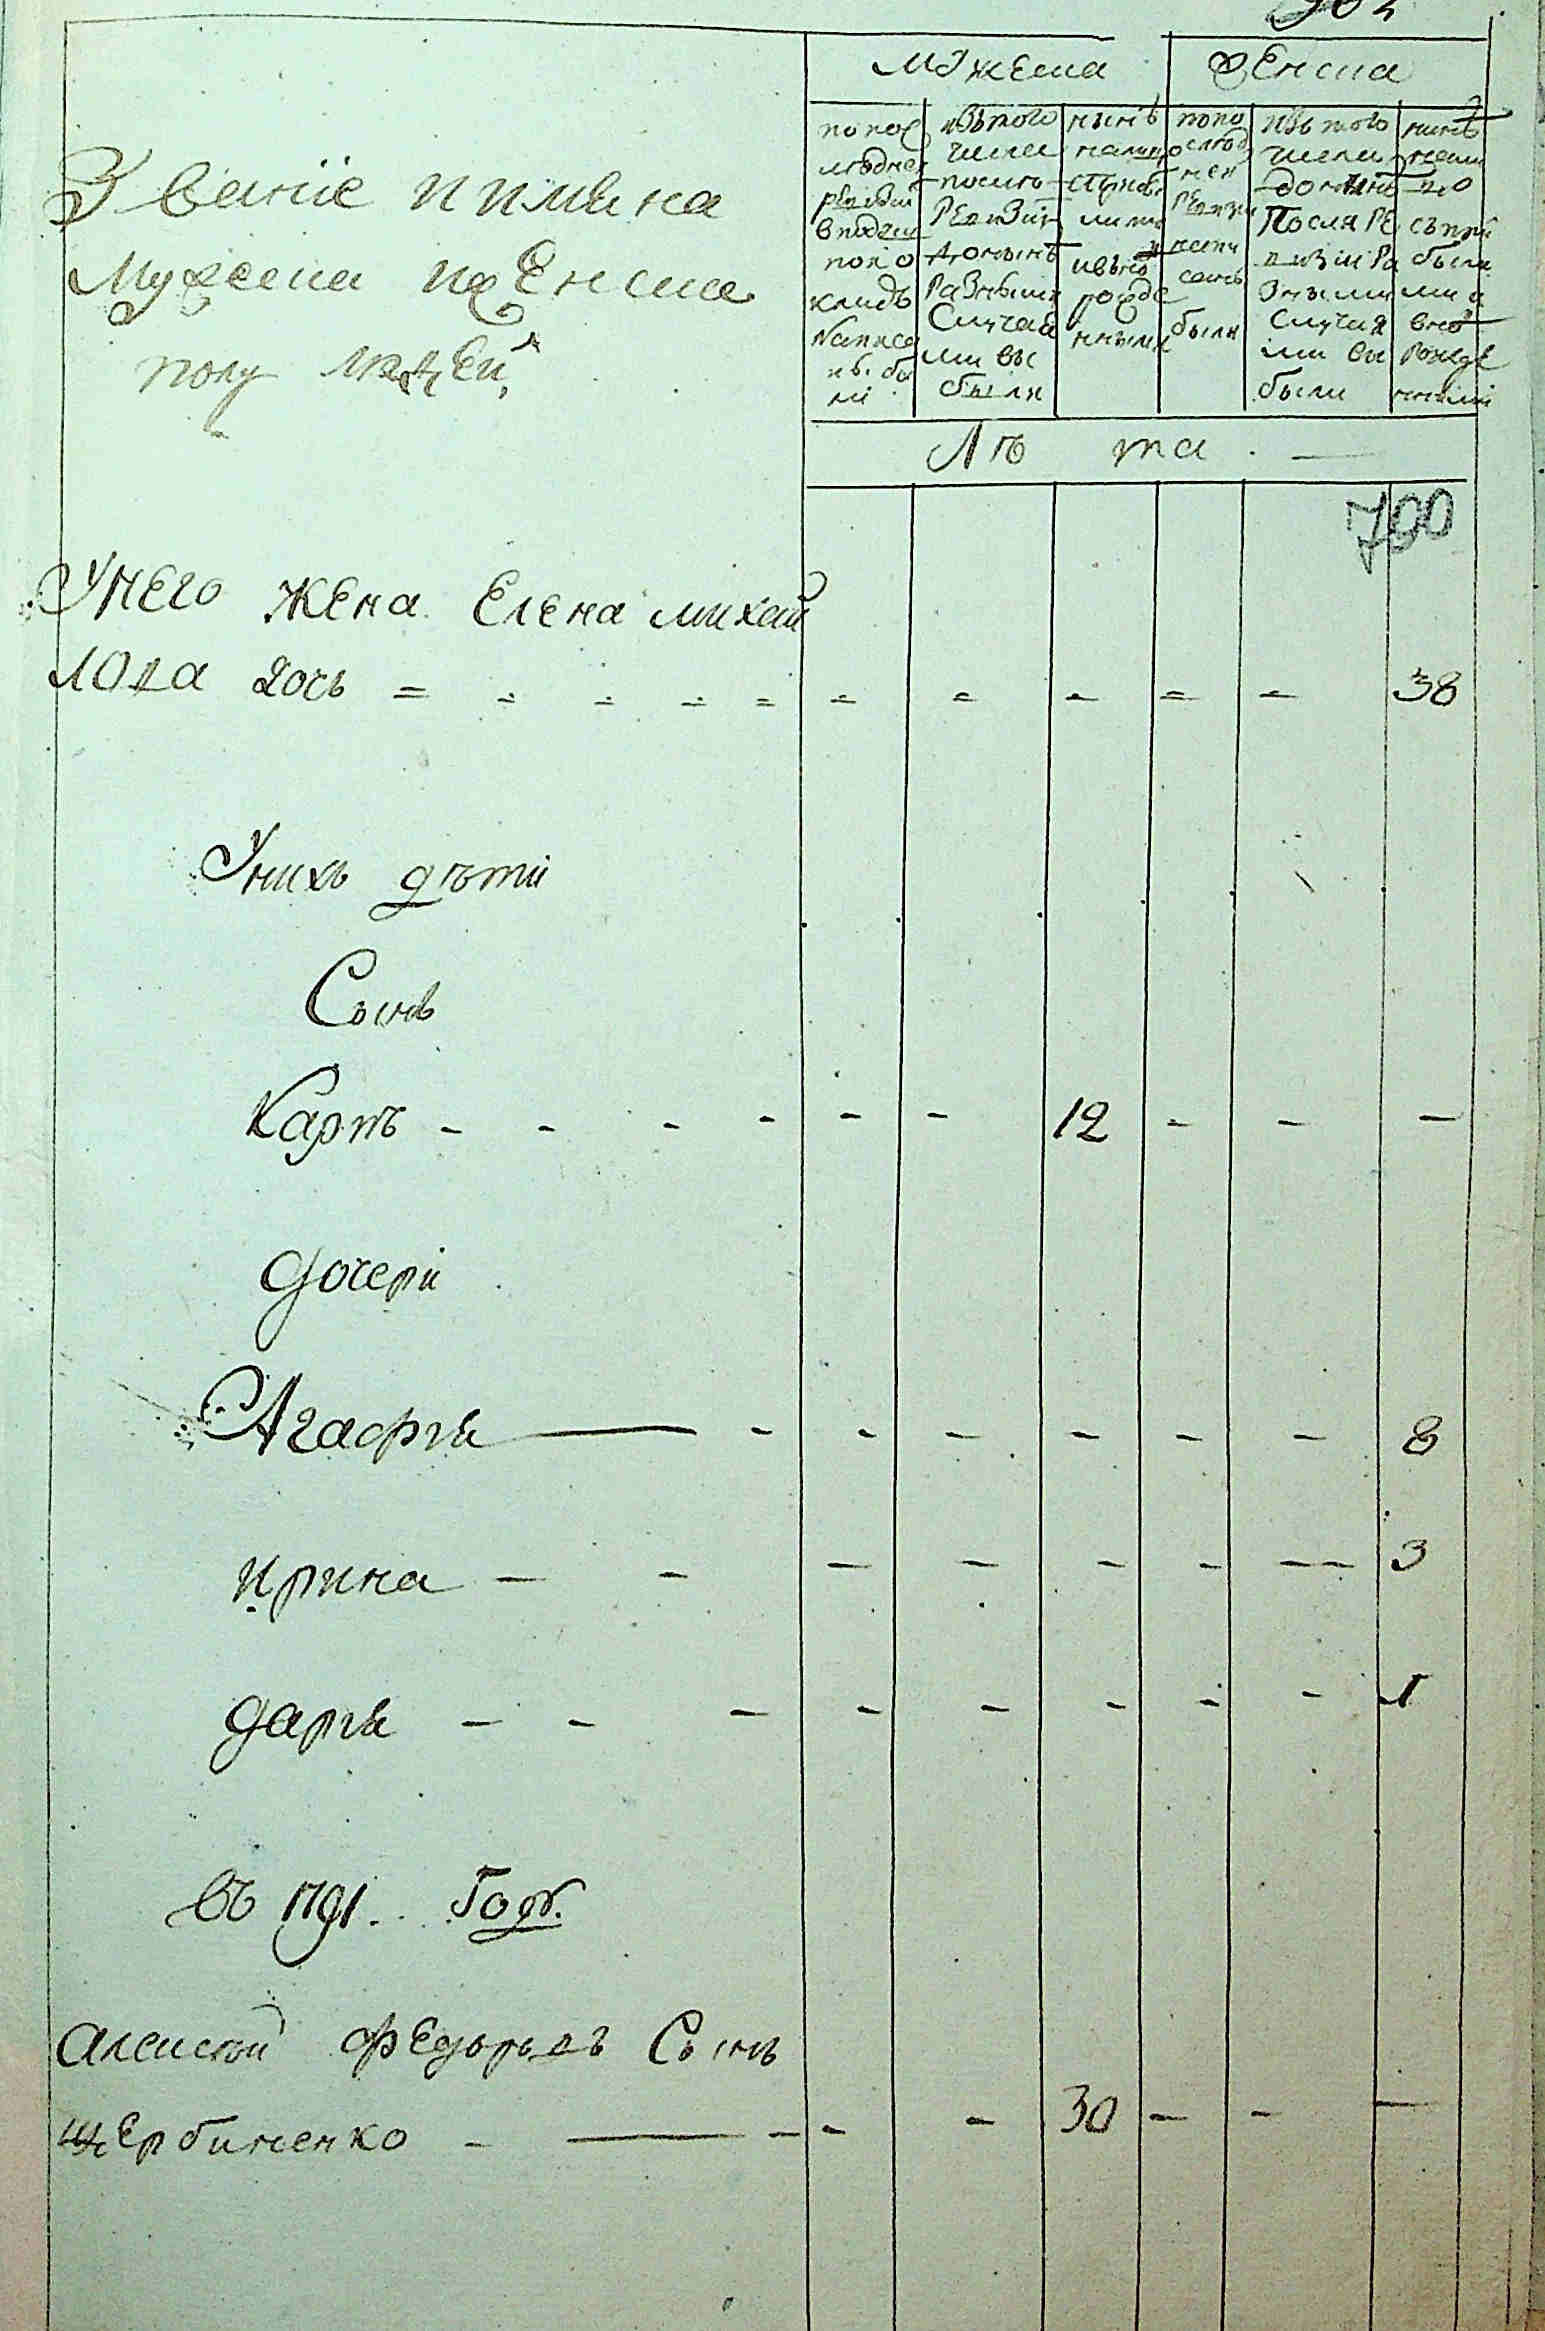 Званіе и имяна
Мужеска и женска
полу людей
мужеска
женска
по пос
ледней
ревизіи
в подуш
ном о
кладъ
написа
нъ бы
ли
изъ того
числа
посль
ревизіи
до нынъ
разными
случая
ми вы
были
нынъ
налицо
ими
и вновь
рожде
нными
по по
след
ней
ревизи
напи
саны
были
изъ того
числа
до нынъ
После ре
визіи ра
зными
случая
ми вы
были
нынъ
нали
цо
съ при
были
ми и
внов
рожде
нными
Лъ та
700
У него жена Елена михай
лова дочь = = = = = = = = = = 38
У нихъ дъти
Сынъ
Карпъ - - - - - - 12 - - -
дочери
Агафія - - - - - - 8
Ирина - - - - - - - 3
дарія - - - - - - - - 1
въ 1791 Годъ.
Алексей федоровъ Сынъ
щербиненко - - - - 30 - - -